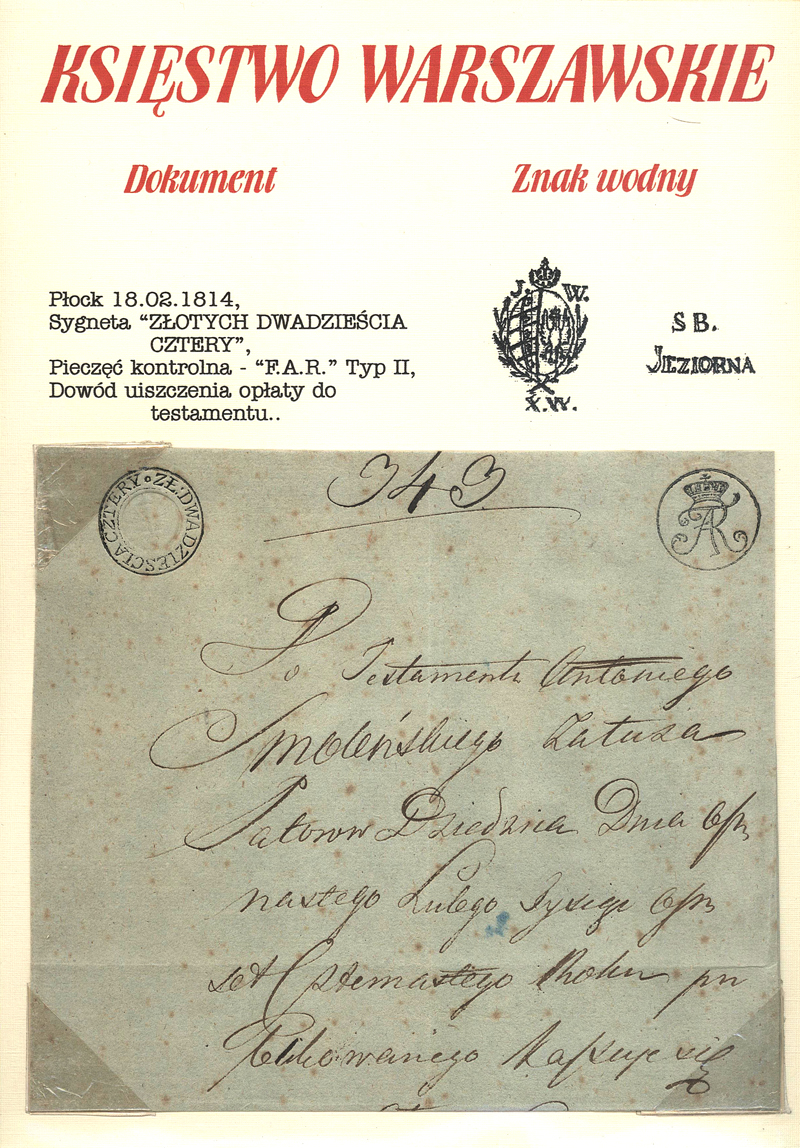 KSIĘSTWO WARSZAWSKIE
Dokument
Znak wodny
Płock 18.02.1814,
Sygneta “ZŁOTYCH DWADZIEŚCIA
CZTERY”,
Pieczęć kontrolna - “F.A.R.” Typ II,
Dowód uiszczenia opłaty do
testamentu..
J. W.
X.W.
S B.
JEZIORNA
ZŁ: DWADZIESCIA CZTERY
FAR
343
Do Testamentu Antoniego
Smoleńskiego
Dziedzica Dnia
nastego Lutego
set Czternastego Roku